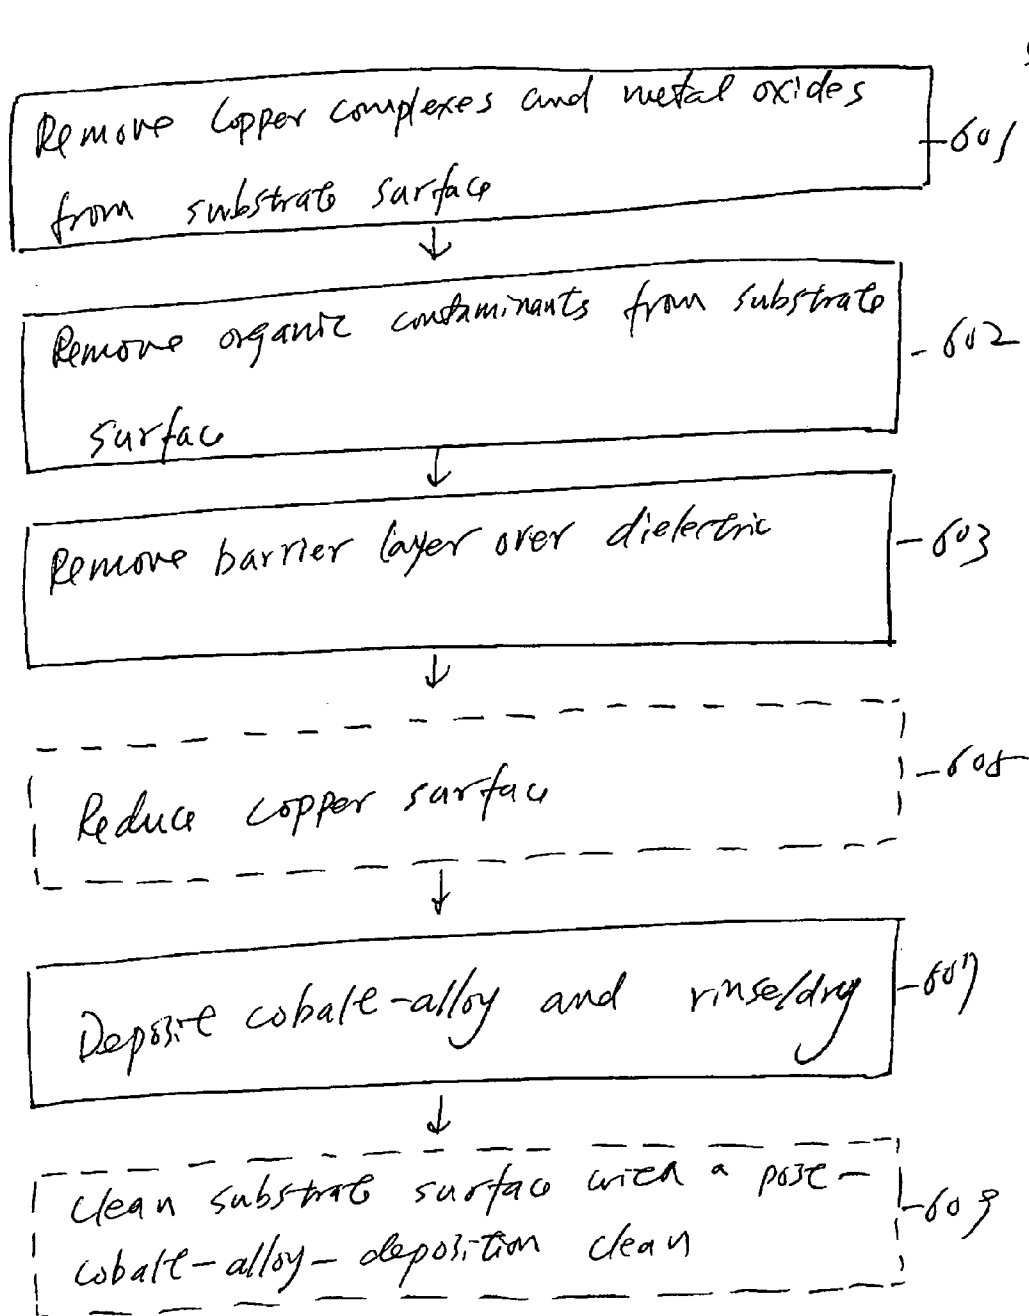 Remove copper complexes and metal oxides
601
from substrate surface
Remove organic contaminants from substrate
602
surface
Remove barrier layer over dielectric
603
Reduce copper surface
605
Deposit cobalt-alloy and rinse/dry
607
Clean substrate surface with a post-
609
cobalt-alloy-deposition clean